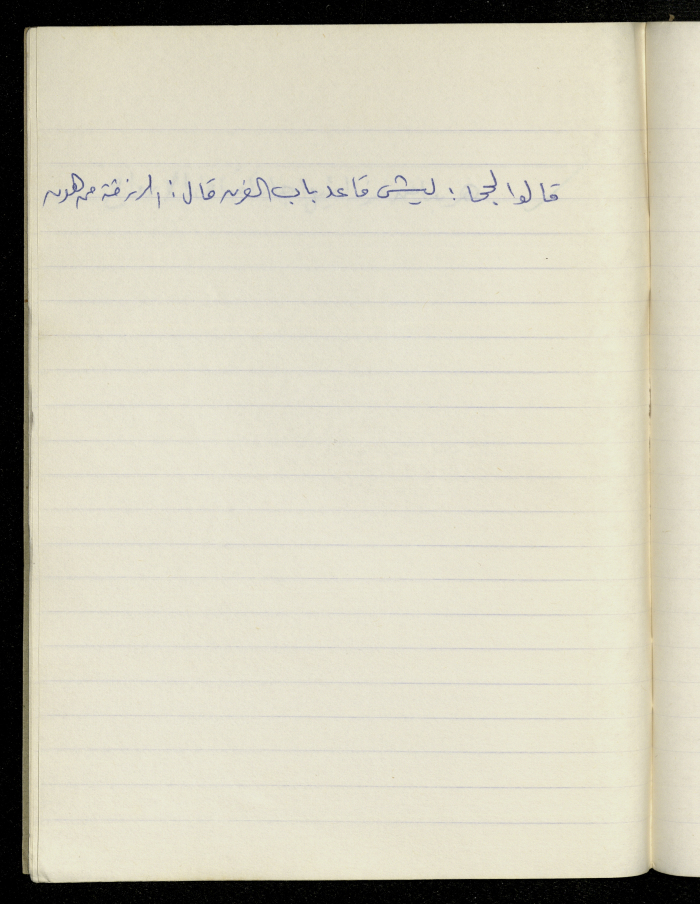 قالوا لجحا : ليش قاعد باب الفرن قال : الرزقة من هون